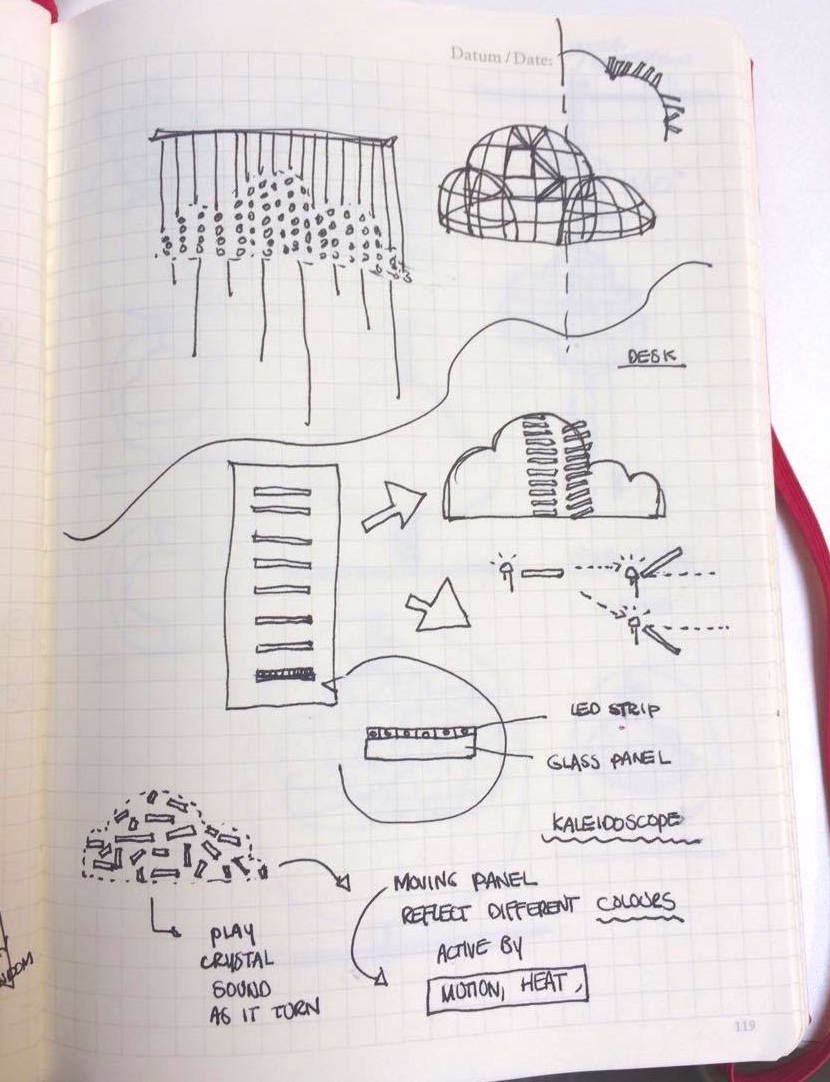 Datum / Date:
DESK
LED STRIP
GLASS PANEL
KALEIDOSCOPE
MOVING PANEL
REFLECT DIFFERENT COLOURS
ACTIVE BY
MOTION, HEAT,
PLAY
CRYSTAL
SOUND
AS IT TURN
119